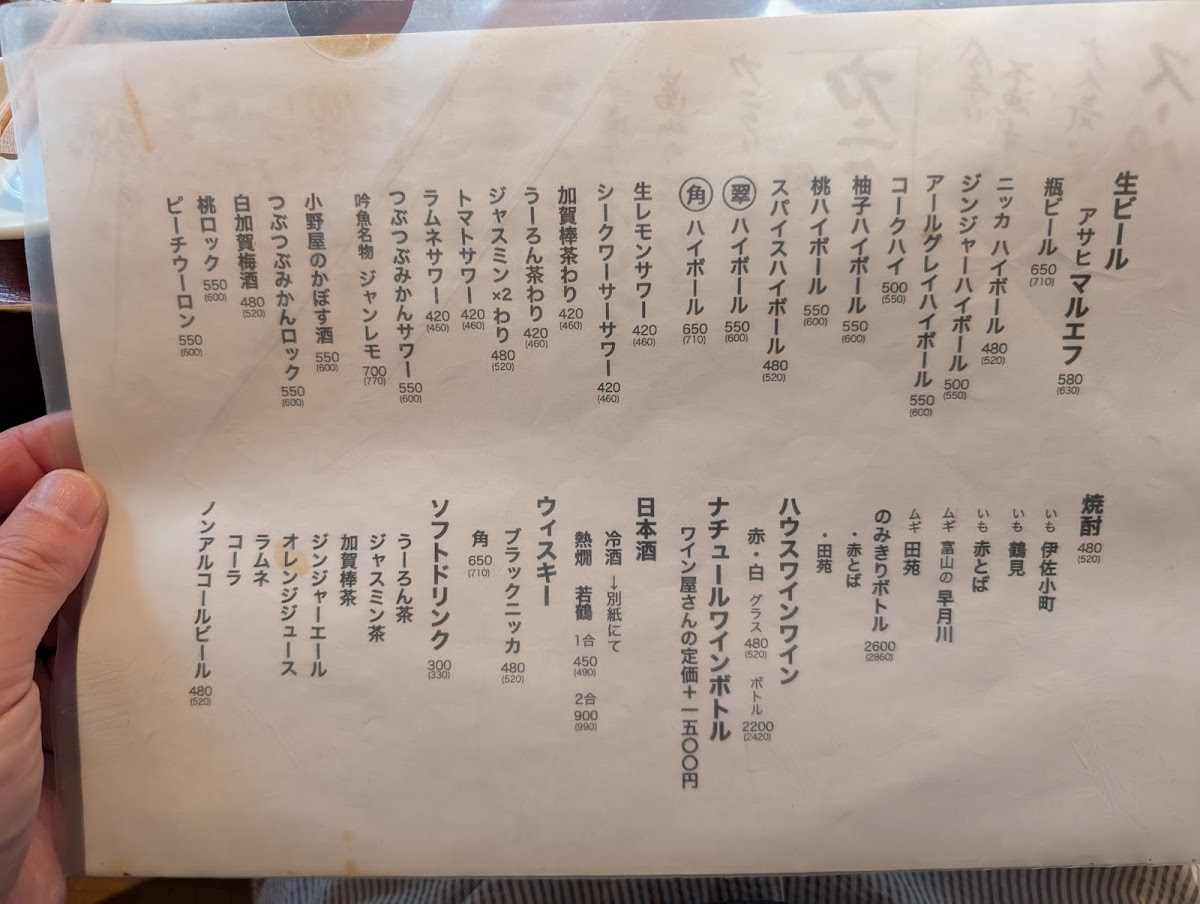 生ビール
アサヒ マルエフ 580 (630)
瓶ビール 650 (710)
ニッカ ハイボール 480 (520)
ジンジャーハイボール 500 (550)
アールグレイハイボール 550 (600)
コークハイ 500 (550)
柚子ハイボール 550 (600)
桃ハイボール 550 (600)
スパイスハイボール 480 (520)
翠 ハイボール 550 (600)
角 ハイボール 650 (710)
生レモンサワー 420 (460)
シークワーサーサワー 420 (460)
加賀棒茶わり 420 (460)
うーろん茶わり 420 (460)
ジャスミン×2わり 480 (520)
トマトサワー 420 (460)
ラムネサワー 420 (460)
つぶつぶみかんサワー 550 (600)
吟魚名物 ジャンレモ 700 (770)
小野屋のかぼす酒 550 (600)
つぶつぶみかんロック 550 (600)
白加賀梅酒 480 (520)
桃ロック 550 (600)
ピーチウーロン 550 (600)
焼酎 480 (520)
いも 伊佐小町
いも 鶴見
いも 赤とば
ムギ 富山の 早月川
ムギ 田苑
のみきりボトル 2600 (2860)
・赤とば
・田苑
ハウスワインワイン
赤・白 グラス 480 (520) ボトル 2200 (2420)
ナチュールワインボトル
ワイン屋さんの定価+一五〇〇円
日本酒
冷酒 →別紙にて
熱燗 若鶴 1合 450 (490) 2合 900 (990)
ウィスキー
ブラックニッカ 480 (520)
角 650 (710)
ソフトドリンク 300 (330)
うーろん茶
ジャスミン茶
加賀棒茶
ジンジャーエール
オレンジジュース
ラムネ
コーラ
ノンアルコールビール 480 (520)